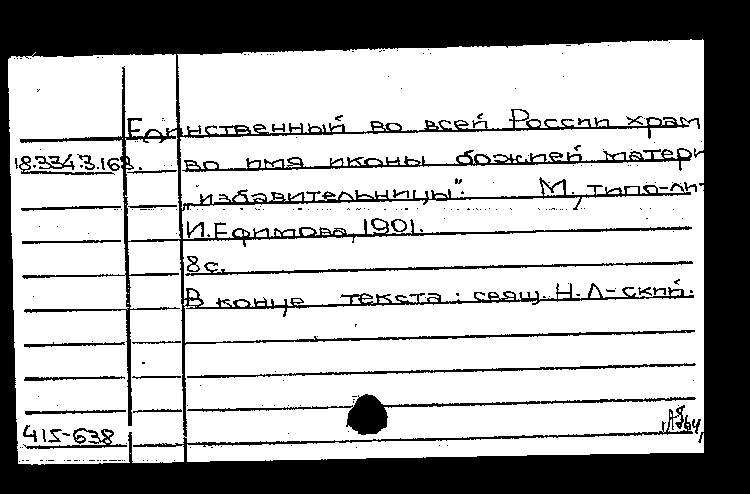 Единственный во всей России храм
18.334.3.168. во имя иконы божией матери
„избавительницы“: М., типо-лит
И.Ефимова, 1901.
8с.
В конце текста: свящ. Н. Л-ский.
415-638